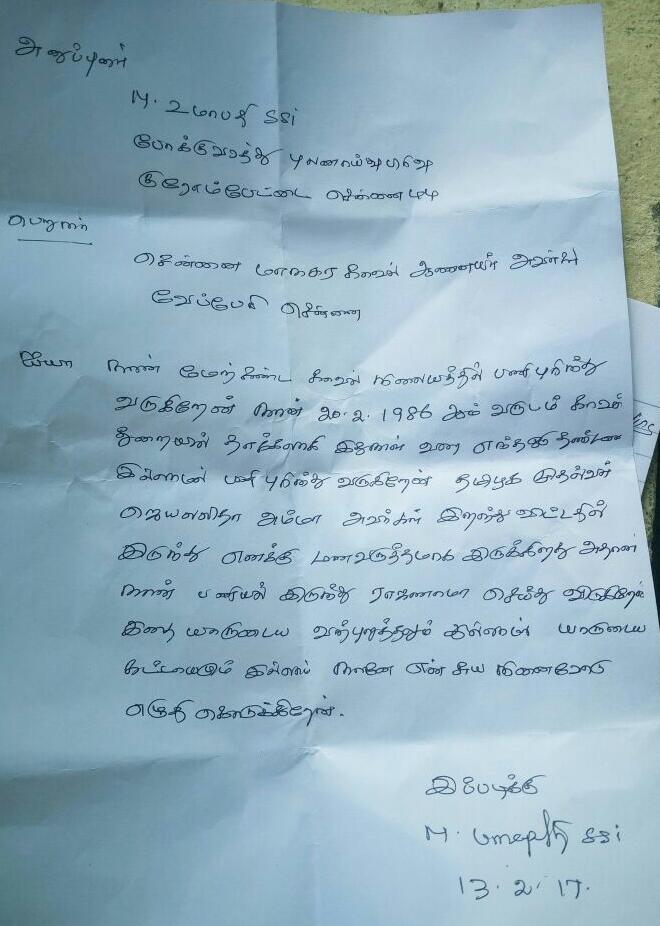 அனுப்புனர்
M. உமாபதி SSI
போக்குவரத்து புலனாய்வு பிரிவு
குரோம்பேட்டை சென்னை
பெறுனர்
சென்னை மாநகர காவல் ஆணையர் அவர்கள்
வேப்பேரி சென்னை
ஐயா நான் மேற்கண்ட காவல் நிலையத்தில் பணிபுரிந்து
வருகிறேன் நான் 20.2.1986 ஆம் வருடம் காவல்
துறையில் இதனால் வரை எந்த தண்டனை
இல்லாமல் பணி புரிந்து வருகிறேன் தமிழக முதல்வர்
ஜெயலலிதா அம்மா அவர்கள் இறந்து விட்டதில்
இருந்து எனக்கு மனவருத்தமாக இருக்கிறது அதனால்
நான் பணியில் இருந்து ராஜினாமா செய்து விடுகிறேன்
இதை யாருடைய வற்புறுத்தலும் இல்லாமல் யாருடைய
கட்டாயமும் இல்லாமல் நானே என் சுய நினைவோடு
எழுதி கொடுக்கிறேன்.
இப்படிக்கு
M. உமாபதி SSI
13.2.17.